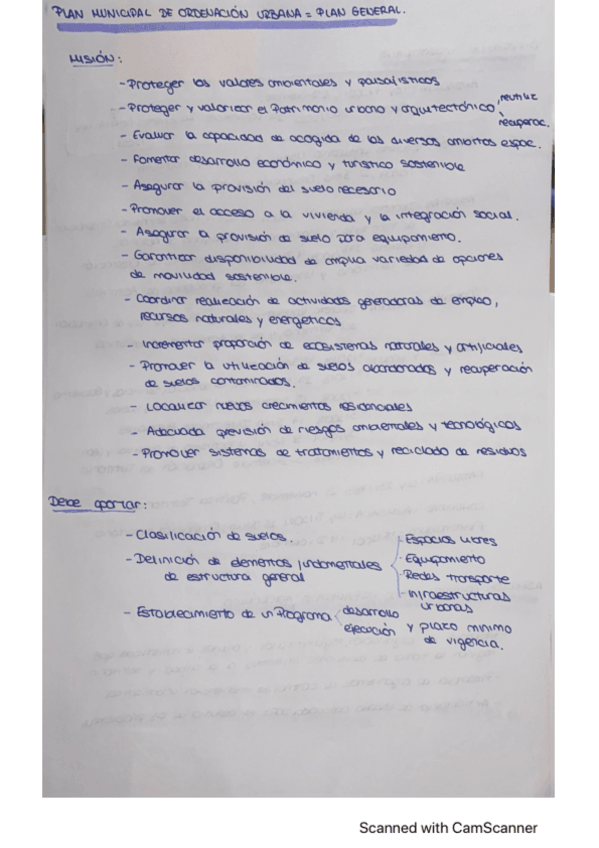 PLAN MUNICIPAL DE ORDENACIÓN URBANA = PLAN GENERAL.
MISIÓN:
- Proteger los valores ambientales y paisajísticos
- Proteger y valorizar el Patrimonio urbano y arquitectónico, reutiliz
recuperac.
- Evaluar la capacidad de acogida de los diversos ambitos espac.
- Fomentar desarrollo económico y turístico sostenible
- Asegurar la provisión del suelo necesario
- Promover el acceso a la vivienda y la integración social.
- Asegurar la provisión de suelo para equipamiento.
- Garantizar disponibilidad de amplia variedad de opciones
de movilidad sostenible.
- Coordinar realización de actividades generadoras de empleo,
recursos naturales y energéticos
- Incrementar proporción de ecosistemas naturales y artificiales
- Promover la utilización de suelos abandonados y recuperación
de suelos contaminados.
- Localizar nuevos crecimientos residenciales
- Adecuada previsión de riesgos ambientales y tecnológicos
- Promover sistemas de tratamientos y reciclado de residuos
Debe aportar:
- Clasificación de suelos.
- Definición de elementos fundamentales
de estructura general
- Espacios libres
- Equipamiento
- Redes transporte
- Infraestructuras
urbanas
- Establecimiento de un Programa
desarrollo
ejecución y plazo mínimo
de vigencia.
Scanned with CamScanner